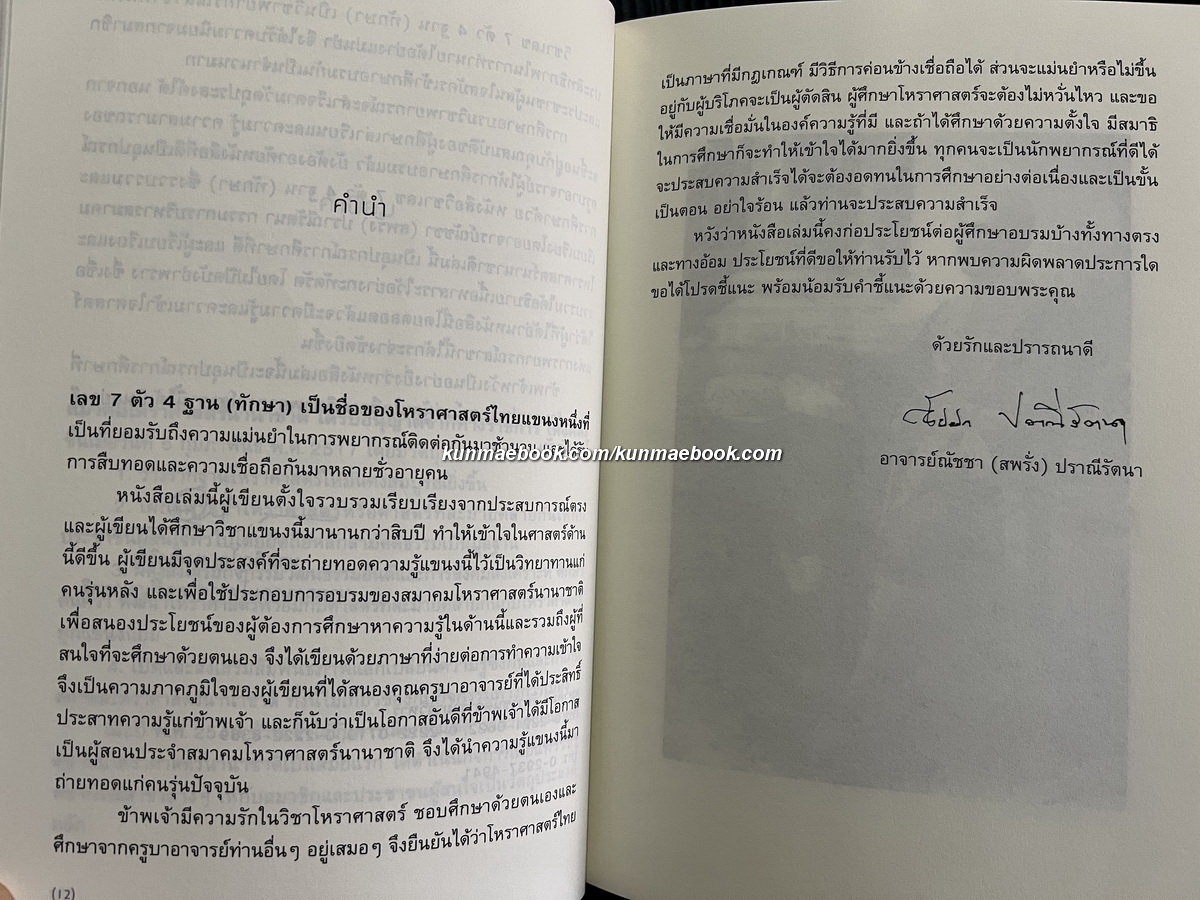 คำนำ
เลข 7 ตัว 4 ฐาน (ทักษา) เป็นชื่อของโหราศาสตร์ไทยแขนงหนึ่งที่
เป็นที่ยอมรับถึงความแม่นยำในการพยากรณ์ติดต่อกันมาช้านาน และได้รับ
การสืบทอดและความเชื่อถือกันมาหลายชั่วอายุคน
หนังสือเล่มนี้ผู้เขียนตั้งใจรวบรวมเรียบเรียงจากประสบการณ์ตรง
และผู้เขียนได้ศึกษาวิชาแขนงนี้มานานกว่าสิบปี ทำให้เข้าใจในศาสตร์ด้าน
นี้ดีขึ้น ผู้เขียนมีจุดประสงค์ที่จะถ่ายทอดความรู้แขนงนี้ไว้เป็นวิทยาทานแก่
คนรุ่นหลัง และเพื่อใช้ประกอบการอบรมของสมาคมโหราศาสตร์นานาชาติ
เพื่อสนองประโยชน์ของผู้ต้องการศึกษาหาความรู้ในด้านนี้และรวมถึงผู้ที่
สนใจที่จะศึกษาด้วยตนเอง จึงได้เขียนด้วยภาษาที่ง่ายต่อการทำความเข้าใจ
จึงเป็นความภาคภูมิใจของผู้เขียนที่ได้สนองคุณครูบาอาจารย์ที่ได้ประสิทธิ์
ประสาทความรู้แก่ข้าพเจ้า และก็นับว่าเป็นโอกาสอันดีที่ข้าพเจ้าได้มีโอกาส
เป็นผู้สอนประจำสมาคมโหราศาสตร์นานาชาติ จึงได้นำความรู้แขนงนี้มา
ถ่ายทอดแก่คนรุ่นปัจจุบัน
ข้าพเจ้ามีความรักในวิชาโหราศาสตร์ ชอบศึกษาด้วยตนเองและ
ศึกษาจากครูบาอาจารย์ท่านอื่นๆ อยู่เสมอๆ จึงยืนยันได้ว่าโหราศาสตร์ไทย
(12)
เป็นภาษาที่มีกฎเกณฑ์ มีวิธีการค่อนข้างเชื่อถือได้ ส่วนจะแม่นยำหรือไม่ขึ้น
อยู่กับผู้บริโภคจะเป็นผู้ตัดสิน ผู้ศึกษาโหราศาสตร์จะต้องไม่หวั่นไหว และขอ
ให้มีความเชื่อมั่นในองค์ความรู้ที่มี และถ้าได้ศึกษาด้วยความตั้งใจ มีสมาธิ
ในการศึกษาก็จะทำให้เข้าใจได้มากยิ่งขึ้น ทุกคนจะเป็นนักพยากรณ์ที่ดีได้
จะประสบความสำเร็จได้จะต้องอดทนในการศึกษาอย่างต่อเนื่องและเป็นขั้น
เป็นตอน อย่าใจร้อน แล้วท่านจะประสบความสำเร็จ
หวังว่าหนังสือเล่มนี้คงก่อประโยชน์ต่อผู้ศึกษาอบรมบ้างทั้งทางตรง
และทางอ้อม ประโยชน์ที่ดีขอให้ท่านรับไว้ หากพบความผิดพลาดประการใด
ขอได้โปรดชี้แนะ พร้อมน้อมรับคำชี้แนะด้วยความขอบพระคุณ
ด้วยรักและปรารถนาดี
อาจารย์ณัชชา (สพรั่ง) ปราณีรัตนา
kunmaebook.com/kunmaebook.com